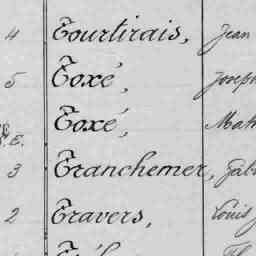 4 Tourtirais, Jean
5 Toxé, Joseph
Toxé, Math
E.
3 Tranchemer, Fab
2 Travers, Louis